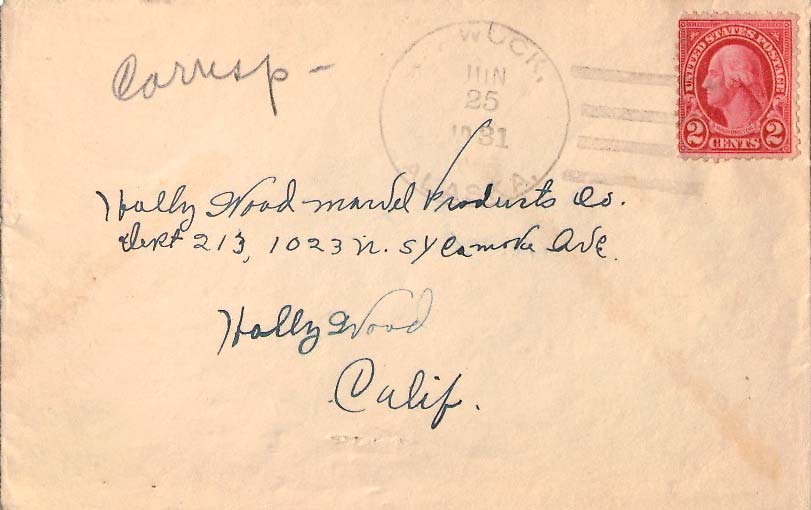 Corresp -
WUCK,
JUN
25
1931
ALASKA.
UNITED STATES POSTAGE
WASHINGTON
2 CENTS 2
Holly Wood marvel Products Co.
Dept 213, 1023 N. Sycamore Ave.
Holly Wood
Calif.